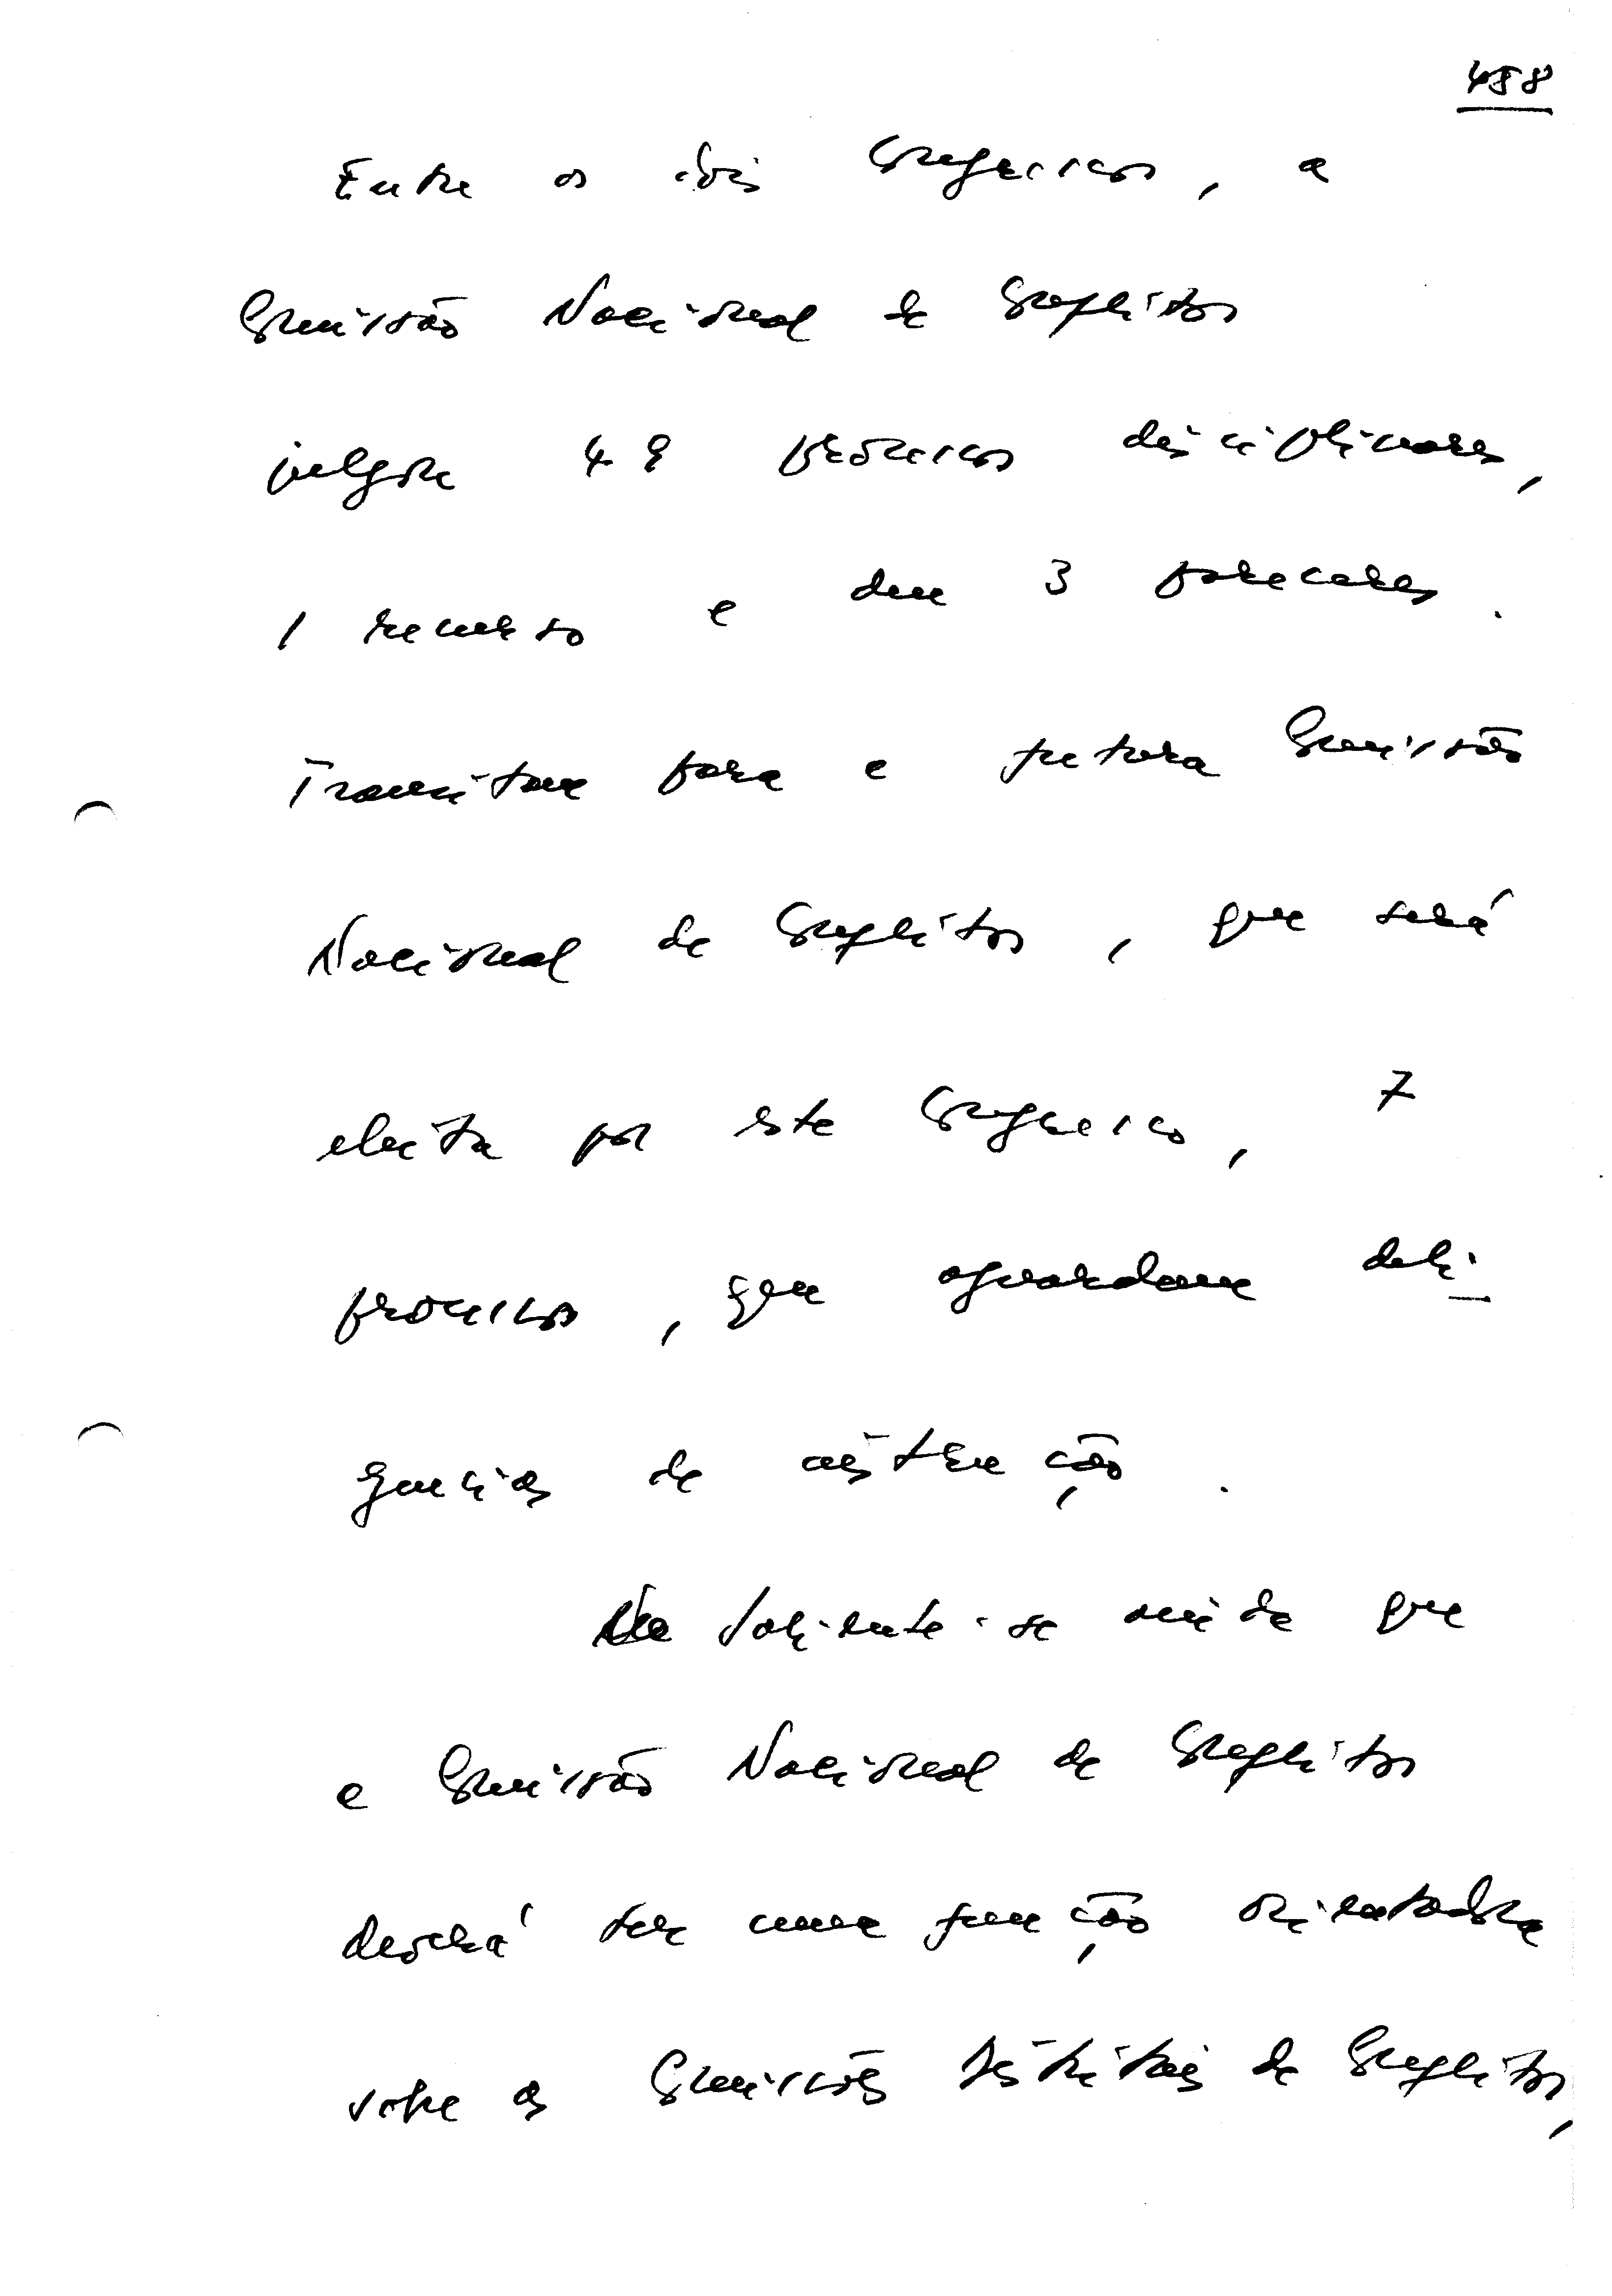 458
Entre os dois Congressos, a
Comissão Nacional de Conflitos
julgou 48 processos disciplinares,
1 recurso e deu 3 pareceres.
Transitam para a futura Comissão
Nacional de Conflitos, que será
eleita por este Congresso, 7
processos, que aguardam dili-
gências de instrução.
Saliente-se ainda que
a Comissão Nacional de Conflitos
deverá ter uma função orientadora
sobre as Comissões Distritais de Conflitos,